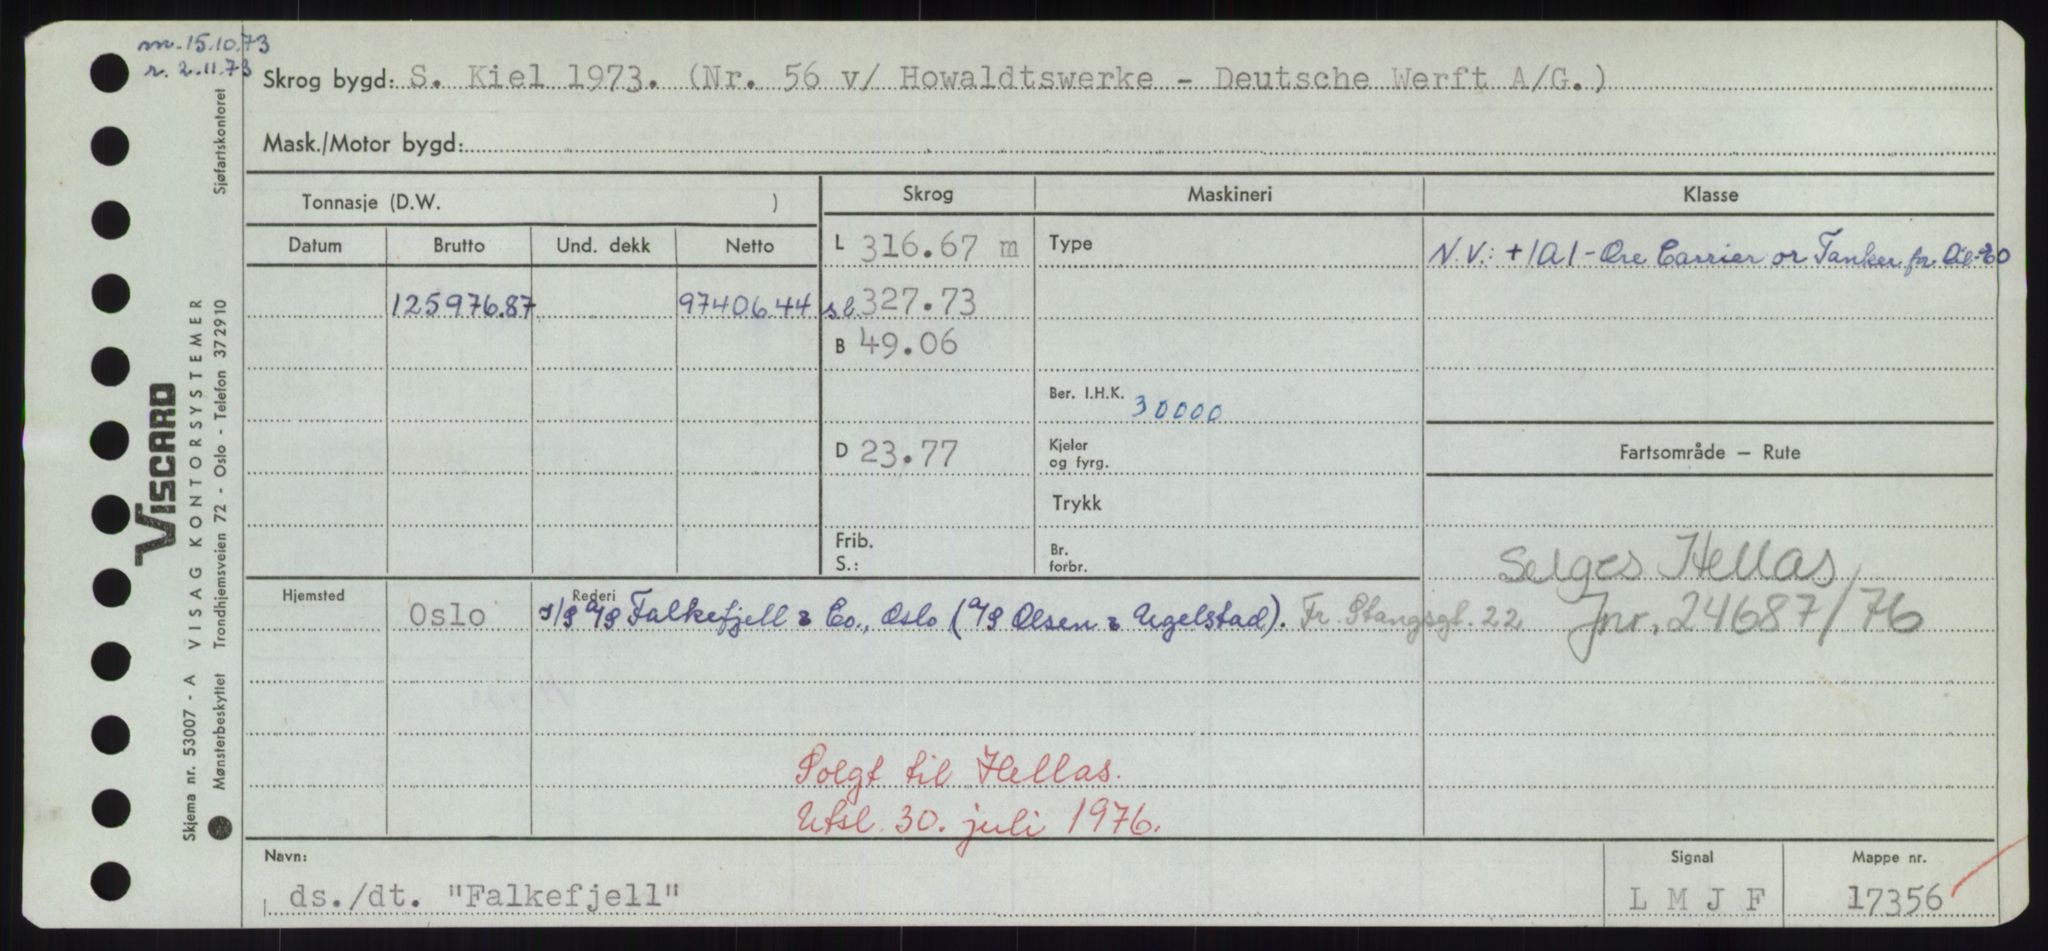 m. 15.10.73
r. 2.11.73
Skrog bygd: S. Kiel 1973. (Nr. 56 v/ Howaldtswerke - Deutsche Werft A/G.)
Mask./Motor bygd:
Tonnasje (D.W. )
Skrog
Maskineri
Klasse
Datum
Brutto
Und. dekk
Netto
L 316.67 m
Type
N.V.: +1A1 - Ore Carrier or Tanker for Oil-E0
125976.87
97406.44
s.l. 327.73
B 49.06
Ber. I.H.K. 30000
D 23.77
Kjeler
og fyrg.
Fartsområde — Rute
Trykk
Frib.
S.:
Br.
forbr.
Selges Hellas
Jnr. 24687/76
Hjemsted
Oslo
Rederi
I/S A/S Falkefjell & Co., Oslo (A/S Olsen & Ugelstad). Fr. Stangsgt. 22
Solgt til Hellas.
Utsl. 30. juli 1976.
Navn:
ds./dt. "Falkefjell"
Signal
L M J F
Mappe nr.
17356
VISCARD
VISAG KONTORSYSTEMER
Skjema nr. 53007 - A
Mønsterbeskyttet
Trondhjemsveien 72 - Oslo - Telefon 372910
Sjøfartskontoret